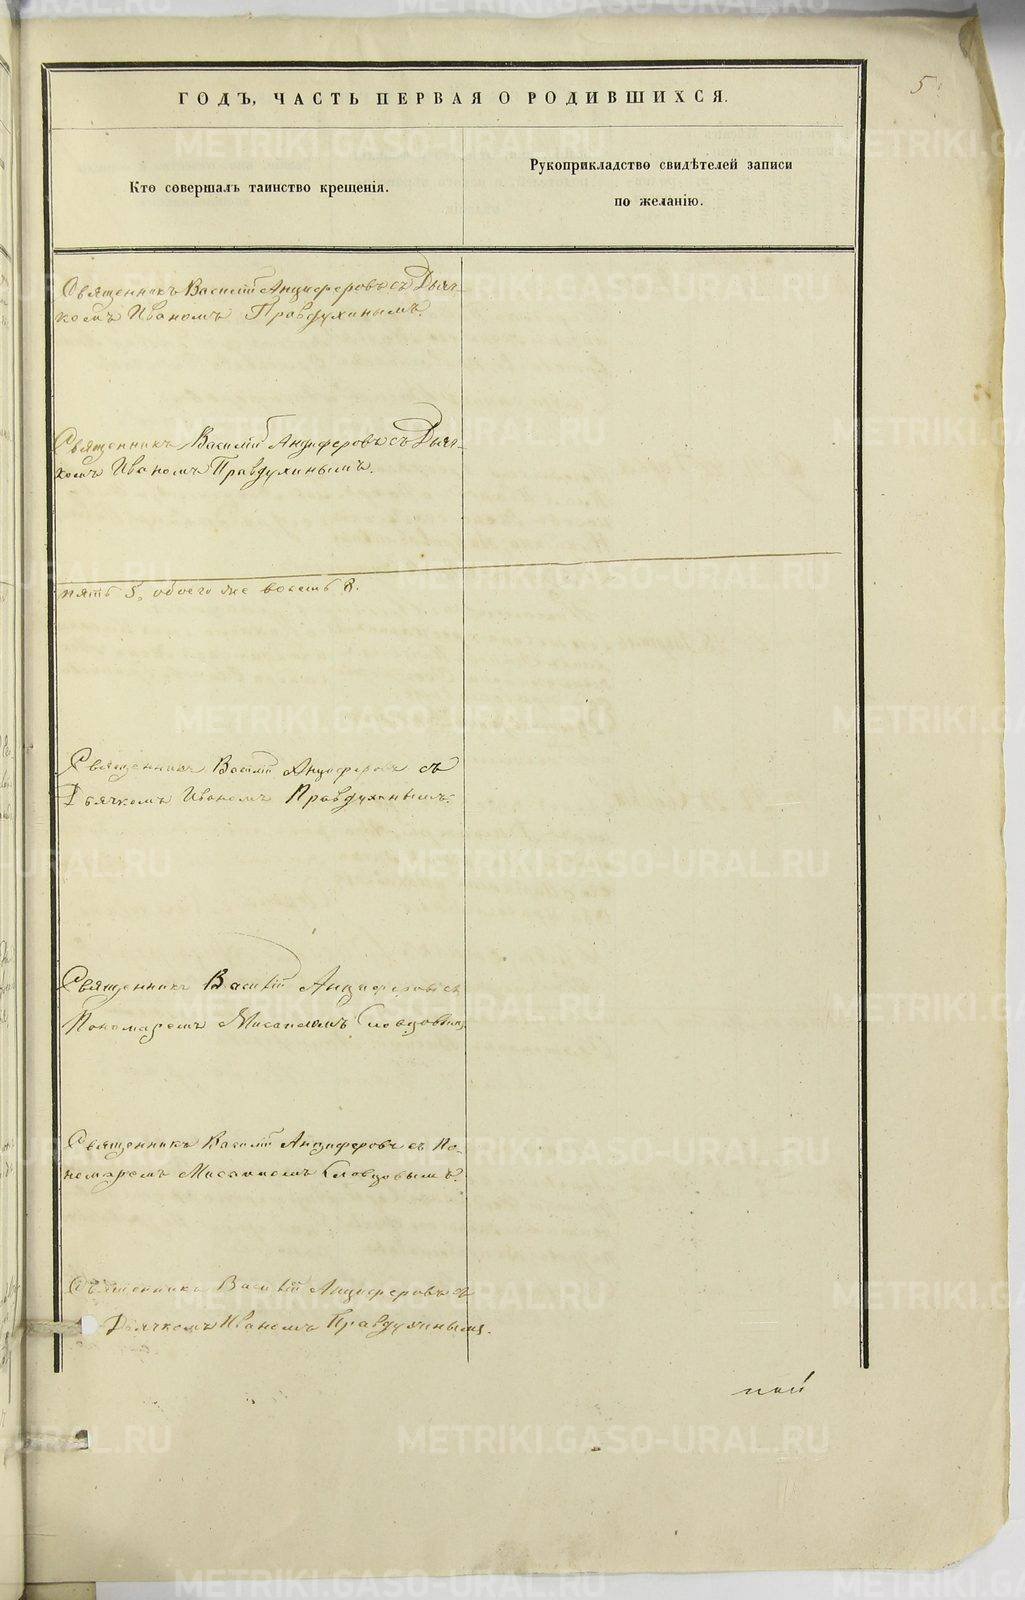 5.
ГОДЪ, ЧАСТЬ ПЕРВАЯ О РОДИВШИХСЯ.
Кто совершалъ таинство крещенія.
Рукоприкладство свидѣтелей записи
по желанію.
Священникъ Василій Анциферовъ съ Дьяч-
комъ Иваномъ Правдухинымъ.
Священникъ Василій Анциферовъ съ Дьяч-
комъ Иваномъ Правдухинымъ.
пять 5, обоего же восемь 8.
Священникъ Василій Анциферовъ съ
Дьячкомъ Иваномъ Правдухинымъ.
Священникъ Василій Анциферовъ съ
Пономаремъ Мисаиломъ Словцовымъ
Священникъ Василій Анциферовъ съ По-
номаремъ Мисаиломъ Словцовымъ.
Священникъ Василій Анциферовъ съ
Дьячкомъ Иваномъ Правдухинымъ.
METRIKI.GASO-URAL.RU